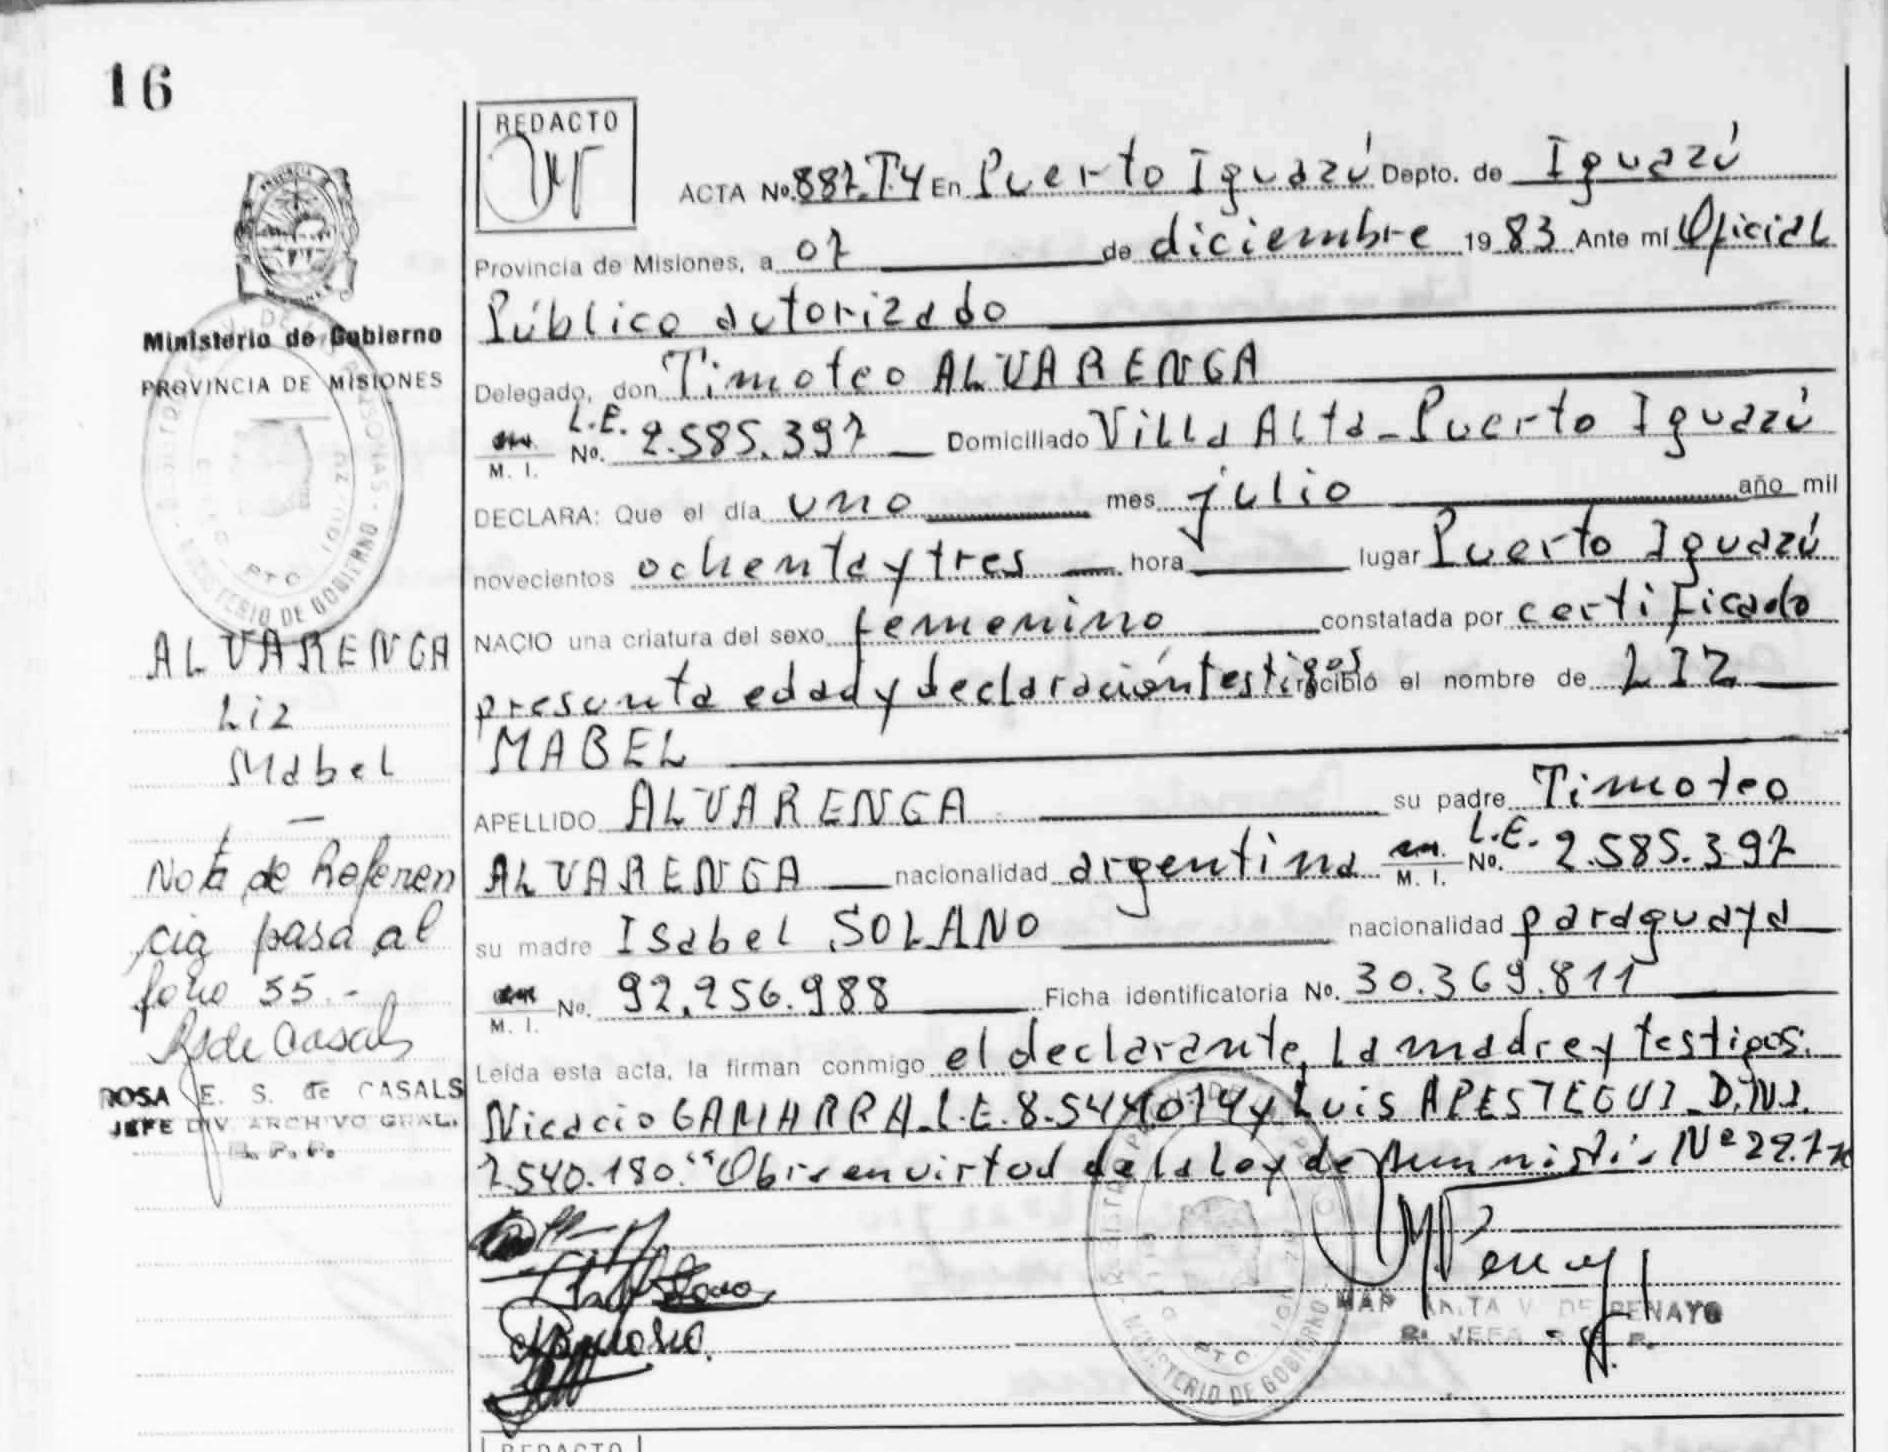 16
REDACTO
ACTA No. 887.T4 En Puerto Iguazú Depto. de Iguazú
Provincia de Misiones, a 07 de diciembre 1983 Ante mí Oficial
Público autorizado
Delegado, don Timoteo ALVARENGA
M. I. No. L.E. 2.585.397 Domiciliado Villa Alta - Puerto Iguazú
DECLARA: Que el día uno mes julio año mil
novecientos ochenta y tres hora lugar Puerto Iguazú
NACIO una criatura del sexo femenino constatada por certificado
presunta edad y declaración testigos recibió el nombre de LIZ
MABEL
APELLIDO ALVARENGA su padre Timoteo
ALVARENGA nacionalidad argentina M. I. No. L.E. 2.585.397
su madre Isabel SOLANO nacionalidad paraguaya
M. I. No. 92.256.988 Ficha identificatoria No. 30.369.811
Leída esta acta, la firman conmigo el declarante, la madre y testigos.
Nicacio GAMARRA L.E. 8.544.014 y Luis APESTEGUI D.N.I.
7.540.180. "Obra en virtud de la Ley de Nº
MINISTERIO DE GOBIERNO
DE PENAYO
Ministerio de Gobierno
PROVINCIA DE MISIONES
MINISTERIO DE GOBIERNO
ALVARENGA
Liz
Mabel
Nota de Referen
cia pasa al
folio 55.-
R S de Casals
ROSA E. S. de CASALS
JEFE DIV. ARCHIVO GRAL.
R. P. P.
REDACTO